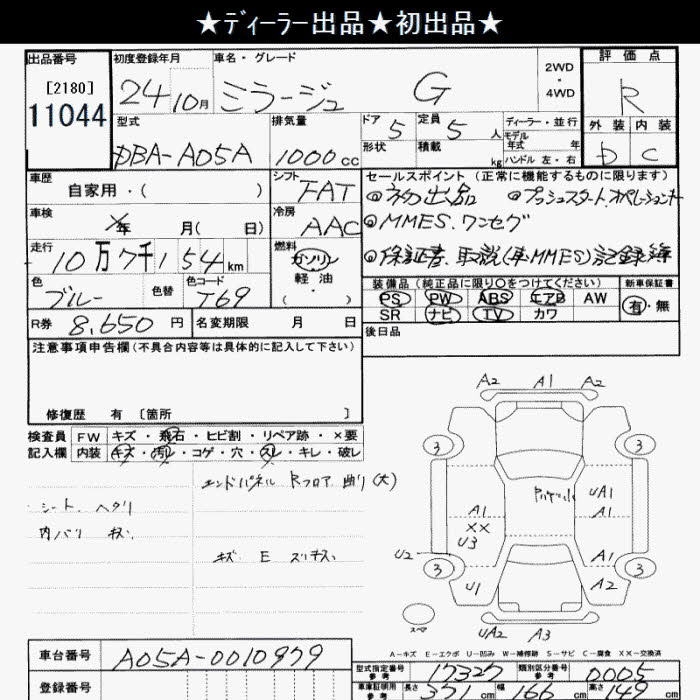 ★ディーラー出品★初出品★
出品番号 初度登録年月 車名・グレード 2WD・4WD 評価点
[2180] 24 10月 ミラージュ G R
11044
型式 排気量 ドア 5 定員 5人 ディーラー・並行 外装 内装
モデル年式 年
DBA-A05A 1000cc 形状 積載 kg ハンドル 左・右 D C
車歴 シフト FAT セールスポイント (正常に機能するものに限ります)
自家用・( ) ◎初出品 ◎プッシュスタートオペレーション
車検 年 月( 日) 冷房 AAC ◎MMES.ワンセグ
走行 燃料 ガソリン ◎保証書.取説(車.MMES)記録簿
10万7千154km 軽油
色 色替 色コード ・( ) 装備品 (純正品に限り○をつけてください) 新車保証書
ブルー T69 PS PW ABS エアB AW 有・無
R券 8,650円 名変期限 月 日 SR ナビ TV カワ
注意事項申告欄(不具合内容等は具体的に記入して下さい) 後日品
修復歴 有 〔箇所 〕
検査員 FW キズ・飛石・ヒビ割・リペア跡・×要
記入欄 内装 キズ・汚レ・コゲ・穴・スレ・キレ・破レ
エンドパネル Rフロア 曲り(大)
シート ヘタリ
内バリ キズ
キズ E スリキズ
A2 A1 A2
3 3
UA1
A1 A1
XX
U3
U2 A1
3 3
U1 A2
スペア UA2 A3
A-キズ E-エクボ U-凹み W-補修跡 S-サビ C-腐食 XX-交換済
車台番号 A05A-0010979 型式指定番号 参考 17327 類別区分番号 参考 0005
登録番号 車庫証明用 参考 長さ 371cm 幅 166cm 高さ 149cm